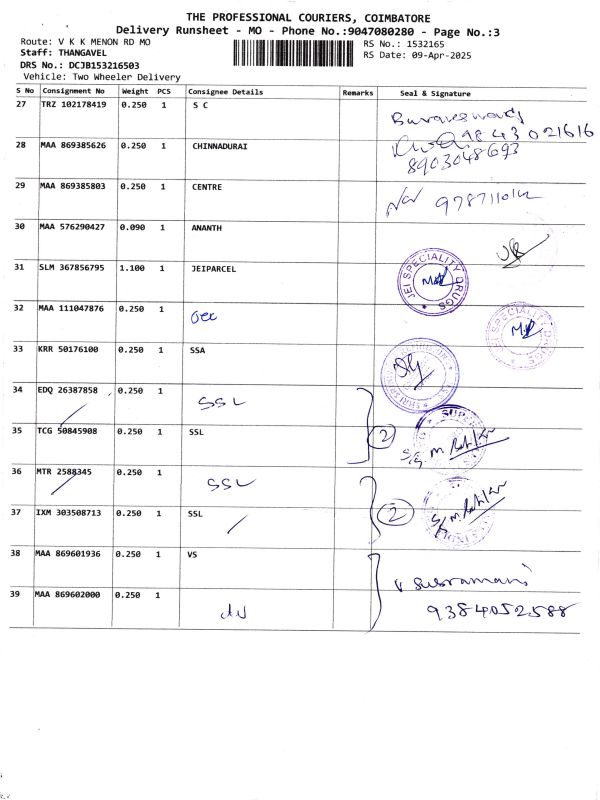 THE PROFESSIONAL COURIERS, COIMBATORE
Delivery Runsheet - MO - Phone No.:9047080280 - Page No.:3
Route: V K K MENON RD MO
Staff: THANGAVEL
DRS No.: DCJB153216503
Vehicle: Two Wheeler Delivery
RS No.: 1532165
RS Date: 09-Apr-2025
S No Consignment No Weight PCS Consignee Details Remarks Seal & Signature
27 TRZ 102178419 0.250 1 S C
9843021616
28 MAA 869385626 0.250 1 CHINNADURAI
8903048693
29 MAA 869385803 0.250 1 CENTRE
30 MAA 576290427 0.090 1 ANANTH
31 SLM 367856795 1.100 1 JEIPARCEL
JEI SPECIALITY DRUGS
32 MAA 111047876 0.250 1
SPECIALITY DRUGS
33 KRR 50176100 0.250 1 SSA
34 EDQ 26387858 0.250 1 SSL
35 TCG 50845908 0.250 1 SSL 2
36 MTR 2588345 0.250 1 SSL
37 IXM 303508713 0.250 1 SSL 2
38 MAA 869601936 0.250 1 VS
V Subramani
39 MAA 869602000 0.250 1
9384052588